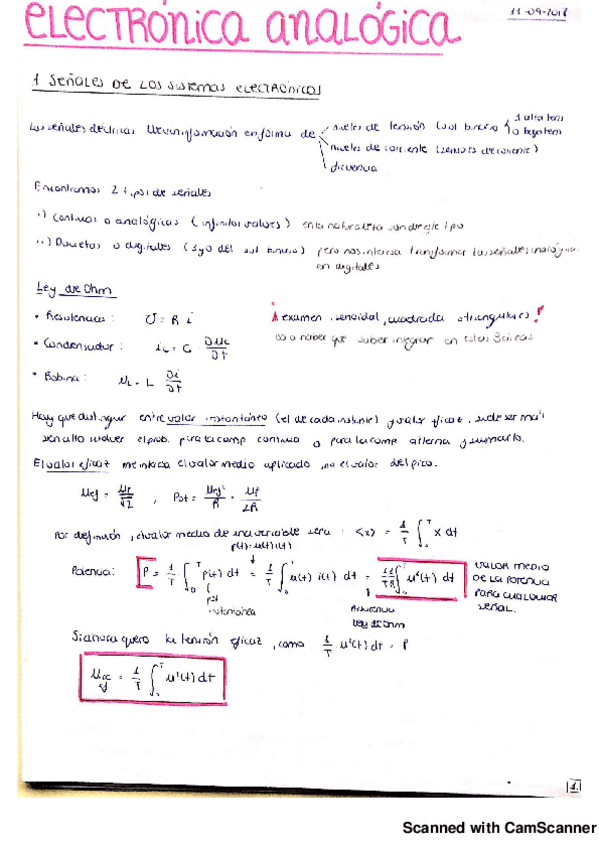 ELECTRÓNICA ANALÓGICA
11-09-2018
1 SEÑALES DE LOS SISTEMAS ELECTRÓNICOS
Las señales eléctricas llevan información en forma de
niveles de tensión
niveles de corriente
frecuencia
Encontramos 2 tipos de señales
·) Continuas o analógicas (infinitos valores) en la naturaleza son de este tipo
··) Discretas o digitales (algo del sist binario) pero nos interesa transformar las señales analógicas
en digitales
Ley de Ohm
• Resistencias: U = R i
• Condensador: ic = C ∂uc/∂t
• Bobina: uL = L ∂i/∂t
examen senoidal, cuadrada o triangulares!
va a haber que saber integrar en estas 3
Hay que distinguir entre valor instantáneo (el de cada instante) y valor eficaz, suele ser más
sencillo volver el prob. para la comp continua o para la comp alterna y sumarlo.
El valor eficaz me indica el valor medio aplicado, no el valor del pico.
Uef = Up/√2 , Pot = Uef²/R =
Por definición, el valor medio de una variable sera: <x> = 1/T ∫₀ᵀ x dt
p(t) = u(t) i(t)
Potencia: P = 1/T ∫₀ᵀ p(t) dt = 1/T ∫₀ᵀ u(t) i(t) dt = 1/T 1/R ∫₀ᵀ u²(t) dt
VALOR MEDIO
DE LA POTENCIA
PARA CUALQUIER
SEÑAL.
pot
instantánea
ley de Ohm
Si ahora quiero la tensión eficaz, como 1/T u²(t) dt = P
= 1/T ∫₀ᵀ u²(t) dt
1
Scanned with CamScanner